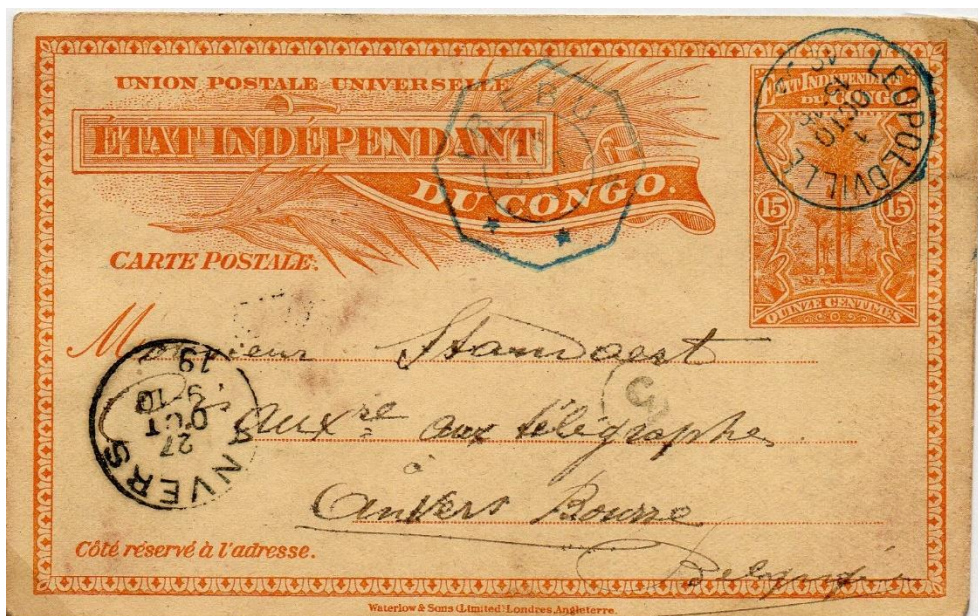 UNION POSTALE UNIVERSELLE
ÉTAT INDÉPENDANT
DU CONGO.
CARTE POSTALE.
IREBU
LEOPOLDVILLE
ÉTAT INDÉPENDANT
DU CONGO
15 15
QUINZE CENTIMES
Monsieur
aux télégraphes
à
Anvers Bourse
Belgique
ANVERS
27
OCT
9 10
19
5
Côté réservé à l'adresse.
Waterlow & Sons (Limited) Londres, Angleterre.